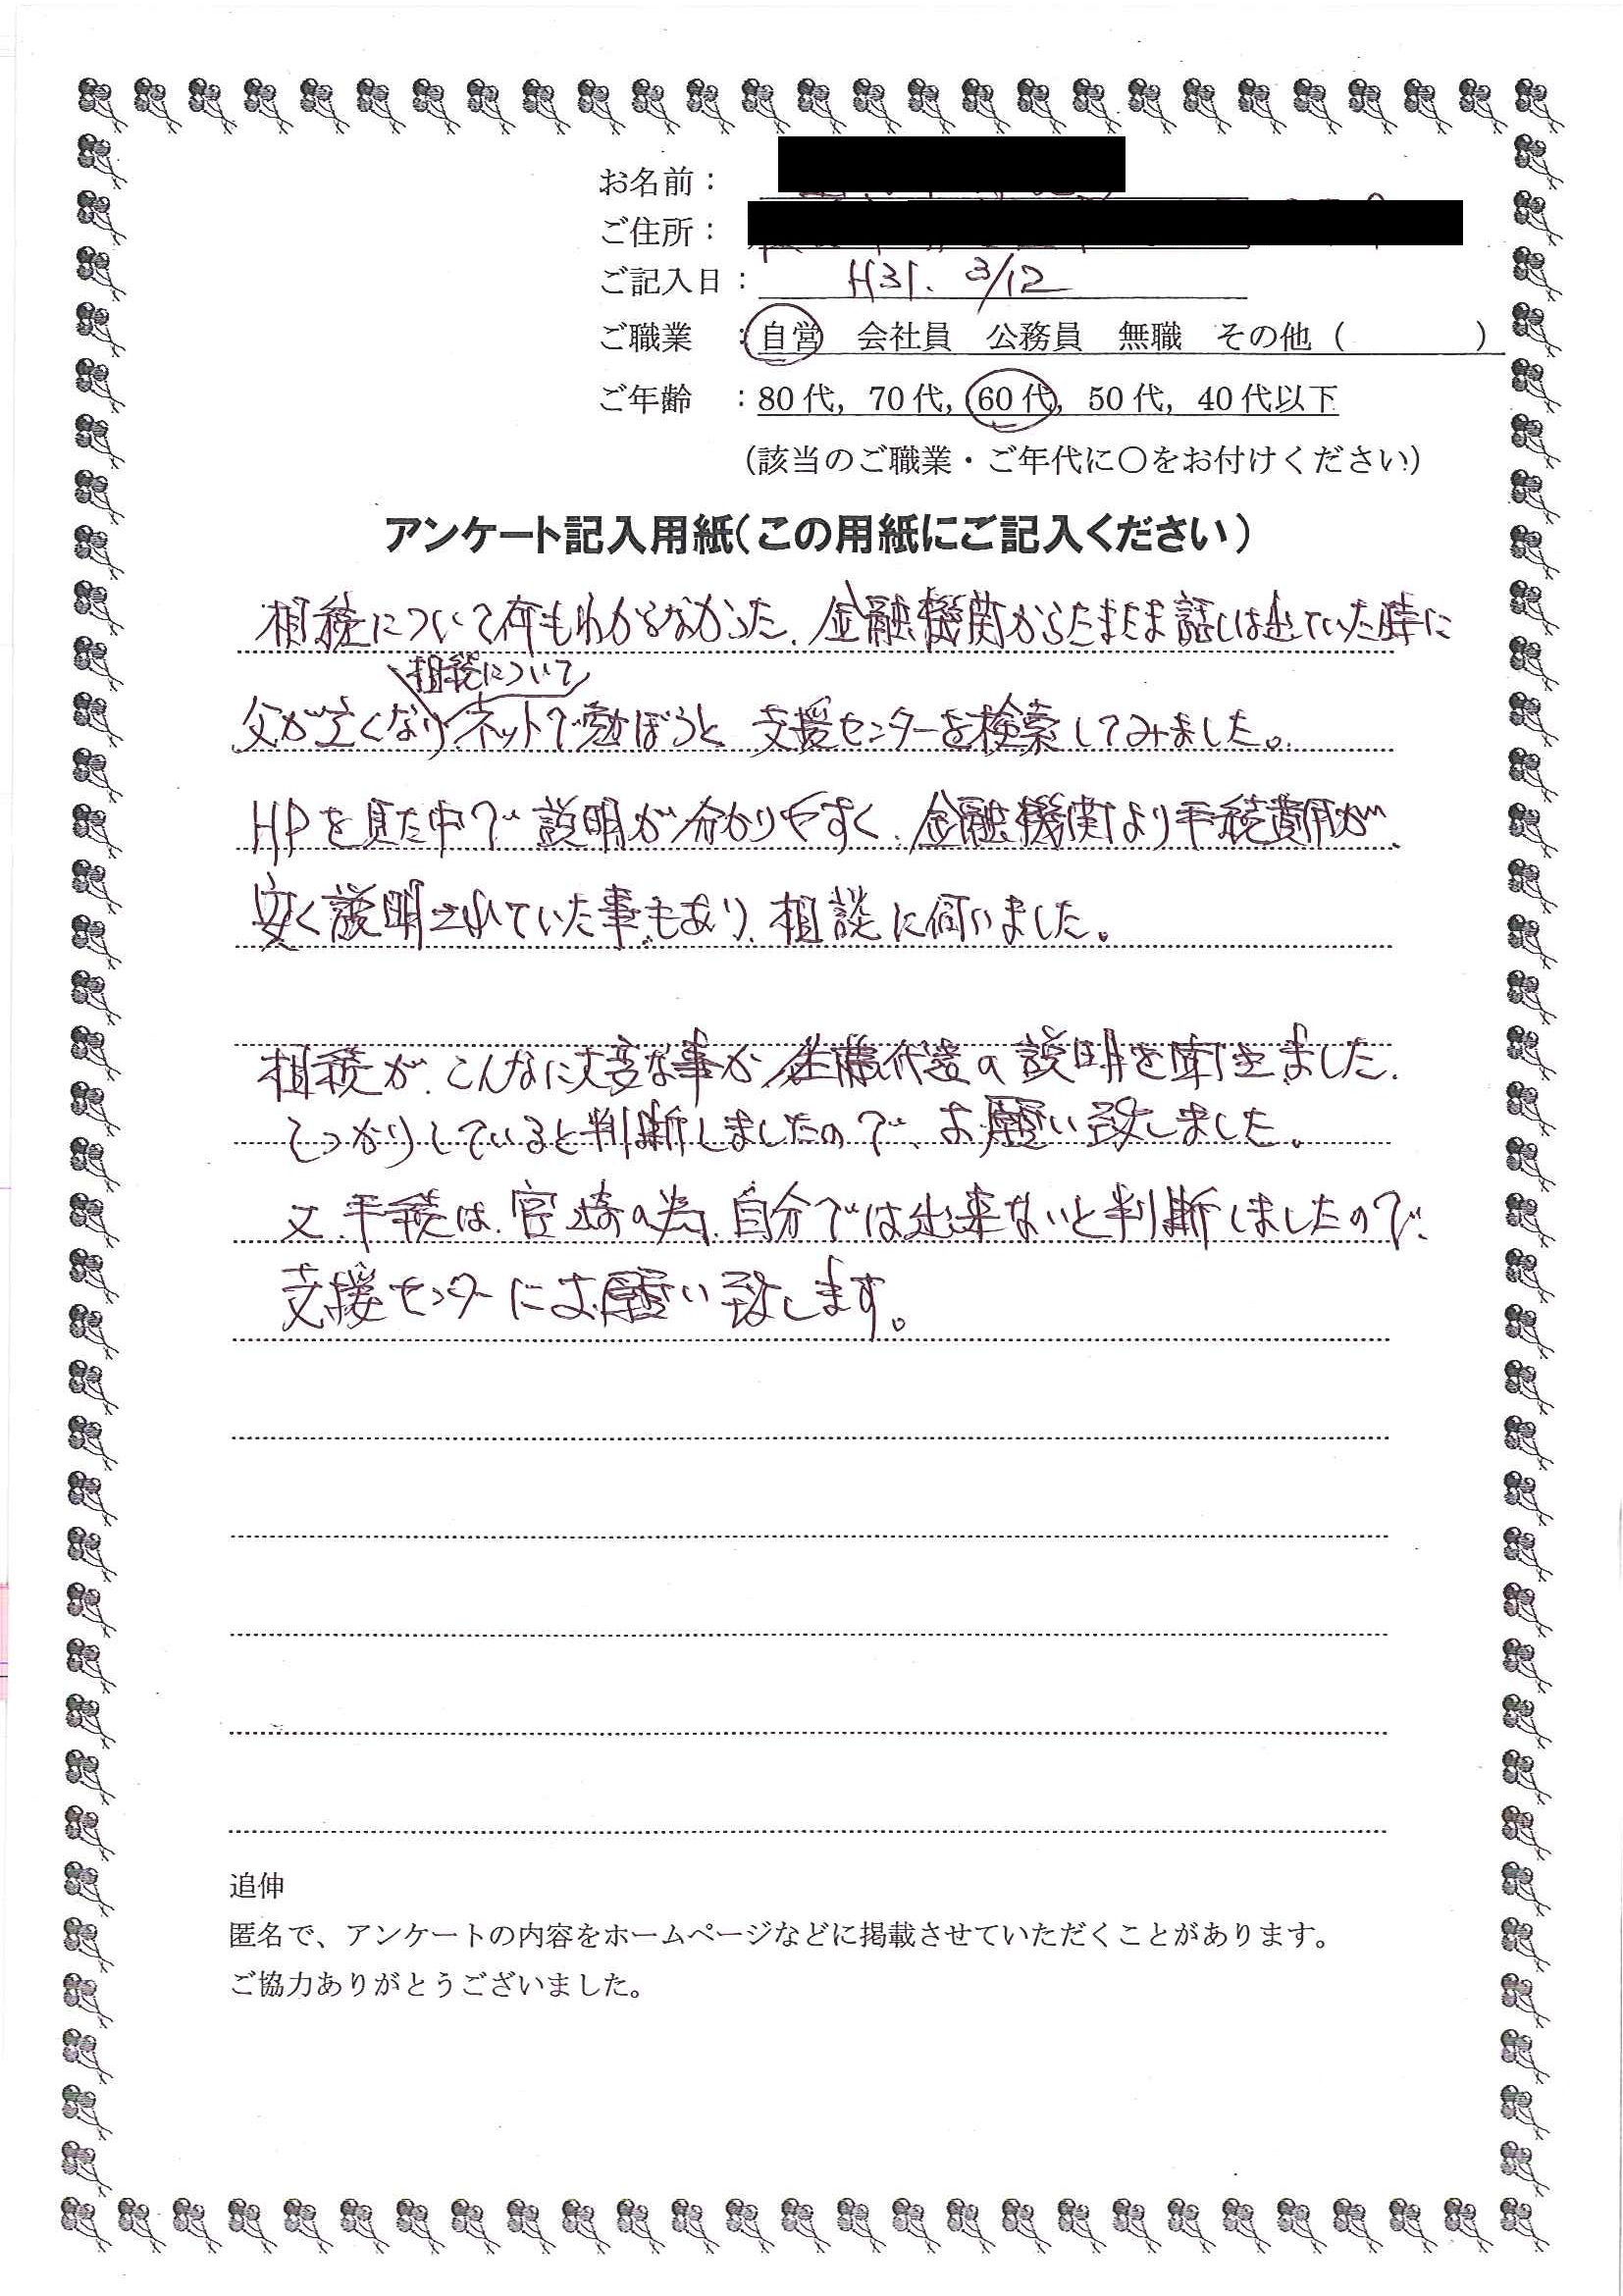 お名前：
ご住所：
ご記入日：H31. 3/12
ご職業　：自営　会社員　公務員　無職　その他（　　　　）
ご年齢　：80代，70代，60代，50代，40代以下
（該当のご職業・ご年代に〇をお付けください）
アンケート記入用紙（この用紙にご記入ください）
相続について何もわからなかった、金融機関からたまたま話しは出ていた時に
相続について
父が亡くなりネットで勉ぼうと 支援センターを検索してみました。
HPを見た中で説明が分かりやすく、金融機関より手続費用が
安く説明されていた事もあり、相談に伺いました。
相続が、こんなに大変な事か 佐藤代表の説明を聞きました、
しっかりしていると判断しましたので、お願い致しました。
又、手続は、宮崎の為、自分では出来ないと判断しましたので、
支援センターにお願い致します。
追伸
匿名で、アンケートの内容をホームページなどに掲載させていただくことがあります。
ご協力ありがとうございました。